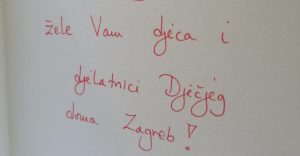 žele Vam djeca i
djelatnici Dječjeg
doma Zagreb!